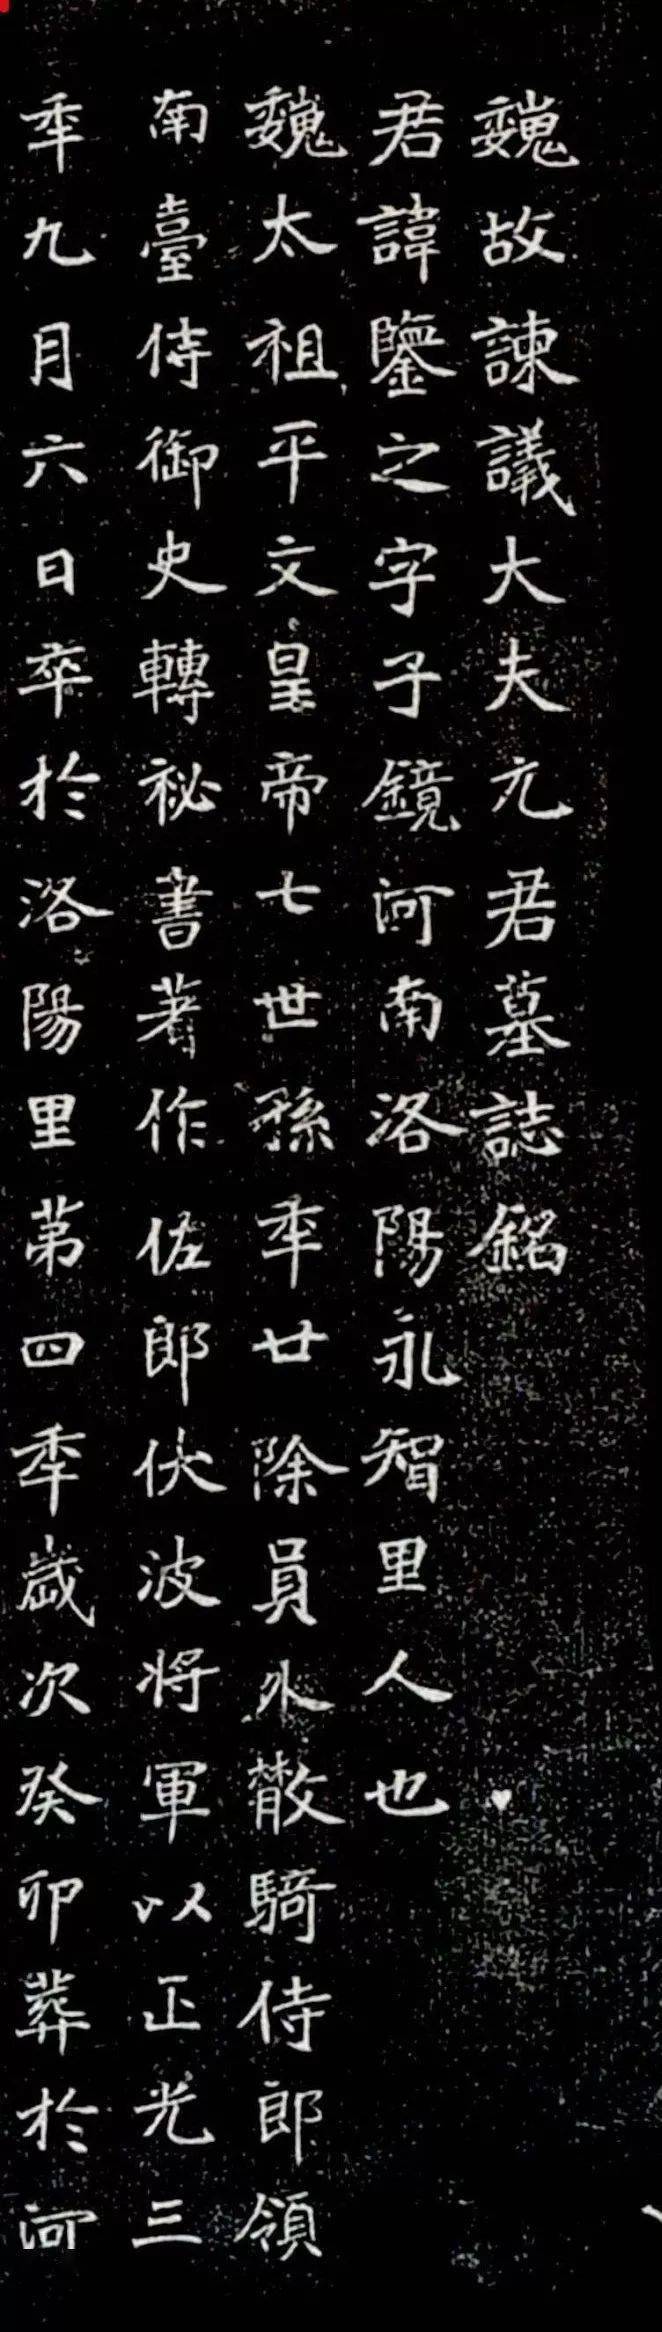 魏故諫議大夫元君墓誌銘
君諱鑒之字子鏡河南洛陽永智里人也
魏太祖平文皇帝七世孫年廿除員外散騎侍郎領
南臺侍御史轉祕書著作佐郎伏波將軍以正光三
年九月六日卒於洛陽里第四年歲次癸卯葬於河